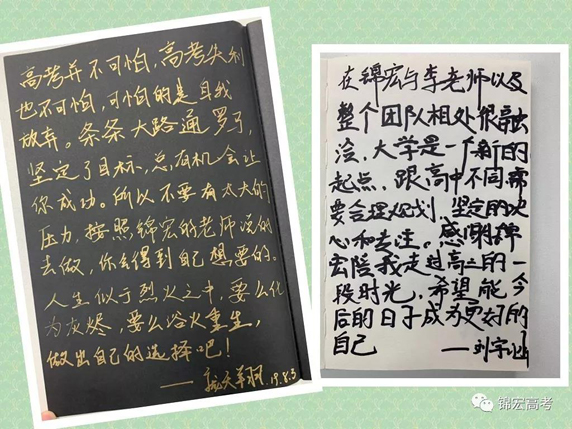 高考并不可怕,高考失利
也不可怕,可怕的是自我
放弃。条条大路通罗马,
坚定了目标,总有机会让
你成功。所以不要有太大的
压力,按照锦宏的老师说的
去做,你会得到自己想要的。
人生似于烈火之中,要么化
为灰烬,要么浴火重生,
做出自己的选择吧!
天翔 19.8.3
在锦宏与李老师以及
整个团队相处很融
洽,大学是一个新的
起点,跟高中不同需
要合理规划 坚定的决
心和专注。感谢锦
宏陪我走过高三的一
段时光,希望能今
后的日子成为更好的
自己 ——刘宇
锦宏高考